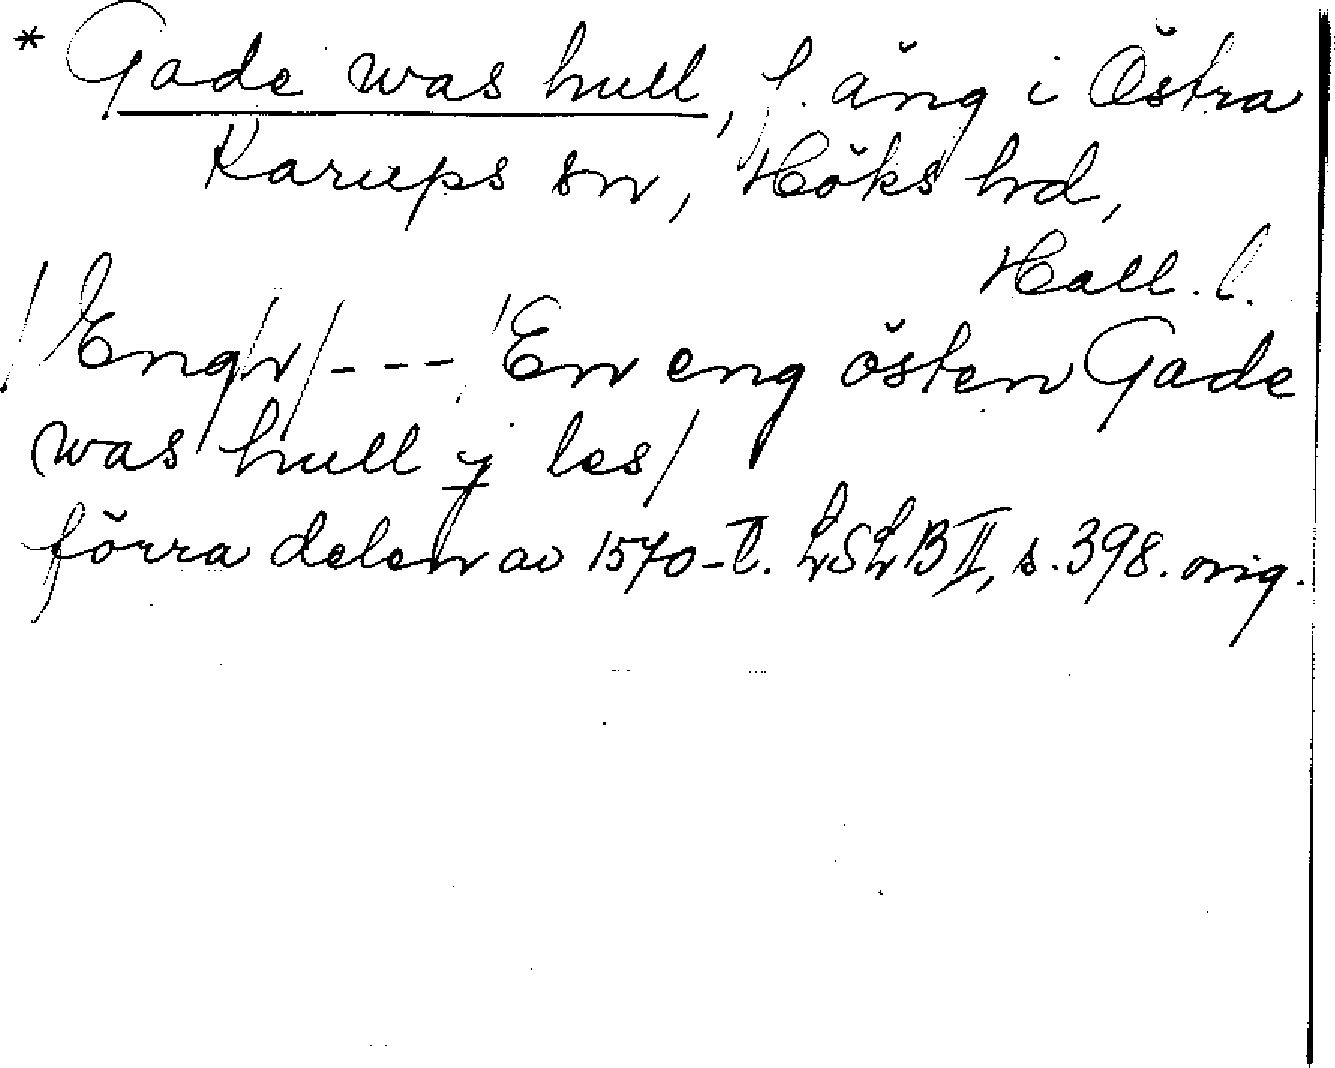 * Gade was hull, f. äng i Östra
Karups sn, Höks hd,
Hall. l.
/Engh/ --- /En eng östen Gade
was hull j les/
förra delen av 1570-t. LSLB II, s. 398. orig.